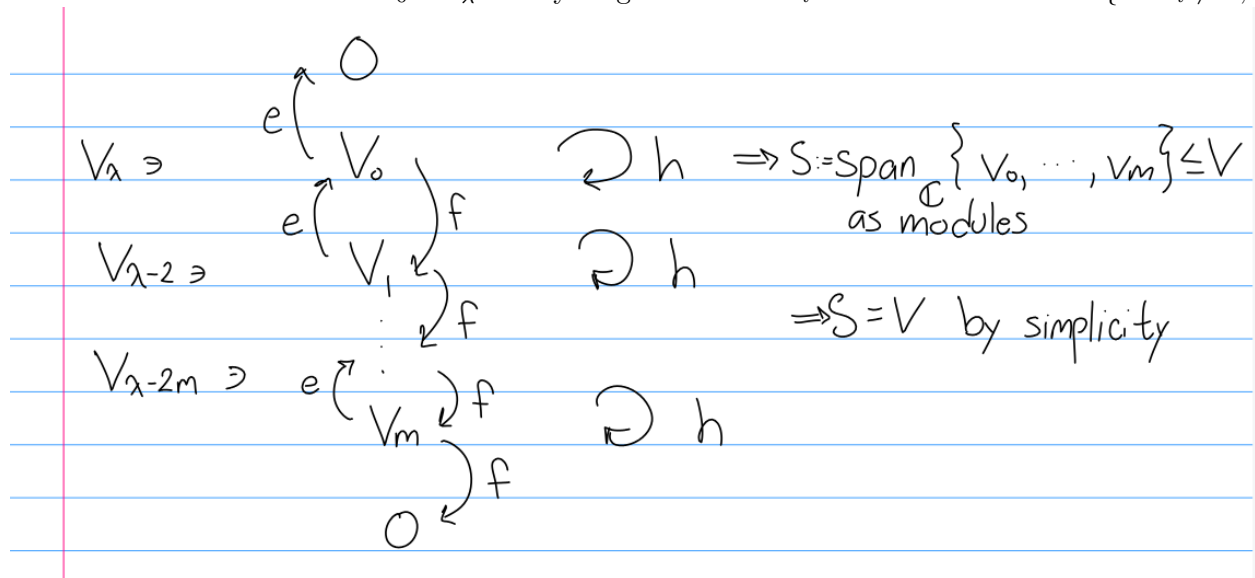 0
e
V_λ ∋ V_0 h ⇒ S:=span_ℂ {V_0, ⋯, V_m} ≤ V
as modules
e f
V_{λ-2} ∋ V_1 h
f
⇒ S = V by simplicity
V_{λ-2m} ∋ e f
V_m h
f
0